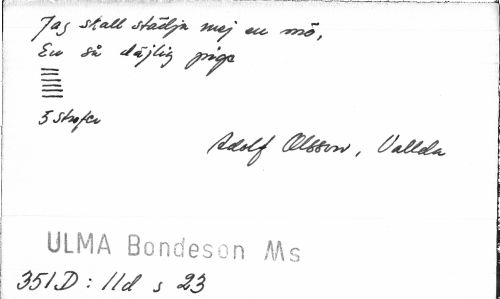 Jag skall städja mej en mö,
En så däjlig piga
5 strofer
Adolf Olsson, Vallda
ULMA Bondeson Ms
351D: 11d s 23